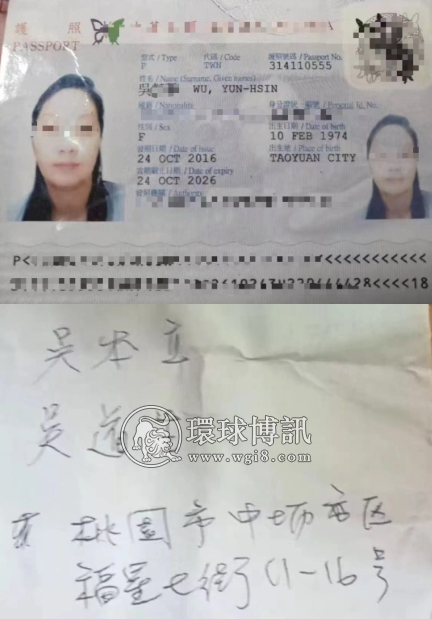 護 照
PASSPORT
型式 / Type 代碼 / Code 護照號碼 / Passport No.
P TWN 314110555
姓名 / Name (Surname, Given names)
吳 WU, YUN-HSIN
國籍 / Nationality 身分證統一編號 / Personal Id. No.
性別 / Sex 出生日期 / Date of birth
F 10 FEB 1974
發照日期 / Date of issue 出生地 / Place of birth
24 OCT 2016 TAOYUAN CITY
效期截止日期 / Date of expiry
24 OCT 2026
發照機關 / Authority
P<
<<<<18
吳本立
吳道
環球博訊
www.wgi8.com
桃園市中坜市区
福星七街11-16号